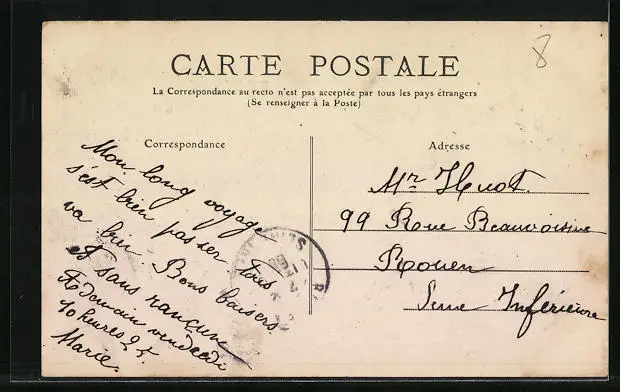 8
CARTE POSTALE
La Correspondance au recto n'est pas acceptée par tous les pays étrangers
(Se renseigner à la Poste)
Correspondance
Adresse
Mon long voyage
s'est bien passer tous
va bien Bons baisers.
et sans rancune
A demain vendredi
10 heures 25.
Marie.
Mr Huot.
99 Rue Beauvoisine
Rouen
Seine Inférieure